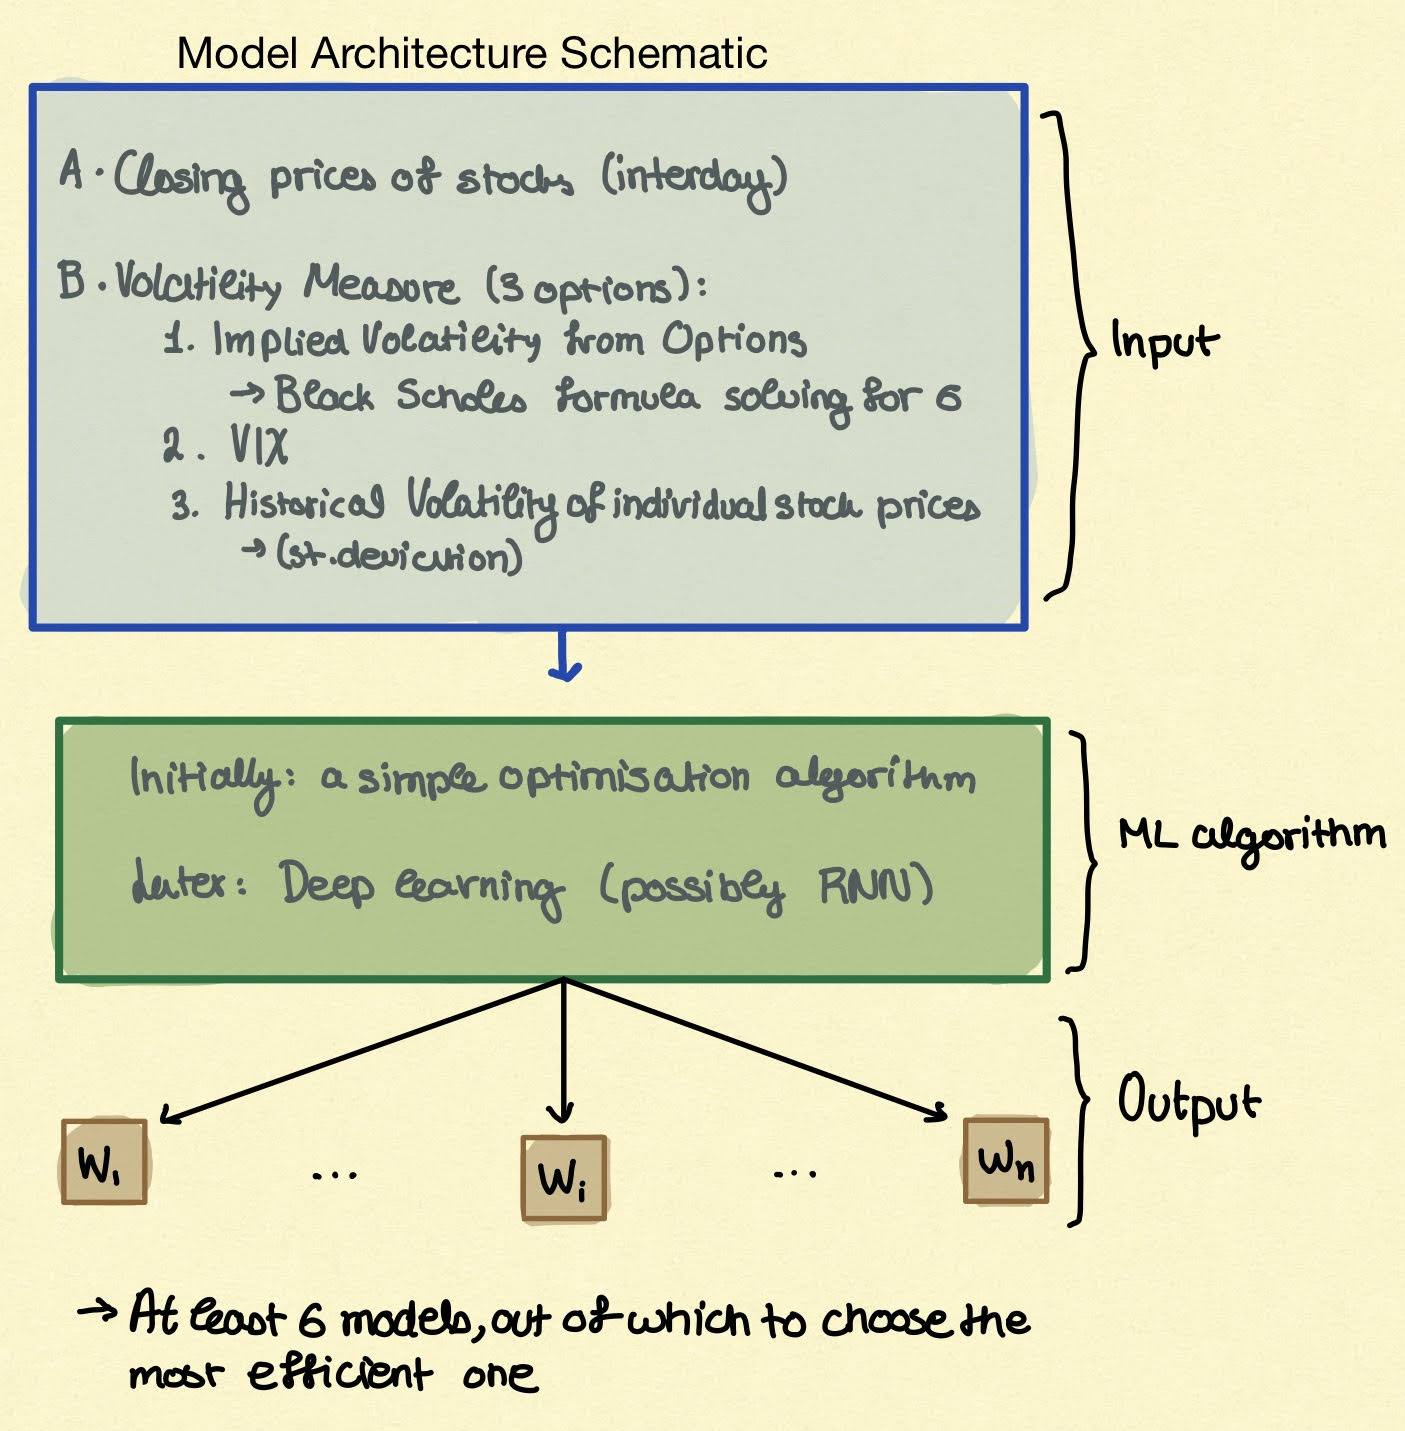 Model Architecture Schematic
A. Closing prices of stocks (interday)
B. Volatility Measure (3 options):
1. Implied Volatility from Options
→ Black Scholes formula solving for σ
2. VIX
3. Historical Volatility of individual stock prices
→ (st.deviation)
Input
Initially: a simple optimisation algorithm
Later: Deep learning (possibly RNN)
ML algorithm
W₁ ... Wᵢ ... Wₙ
Output
→ At least 6 models, out of which to choose the
most efficient one